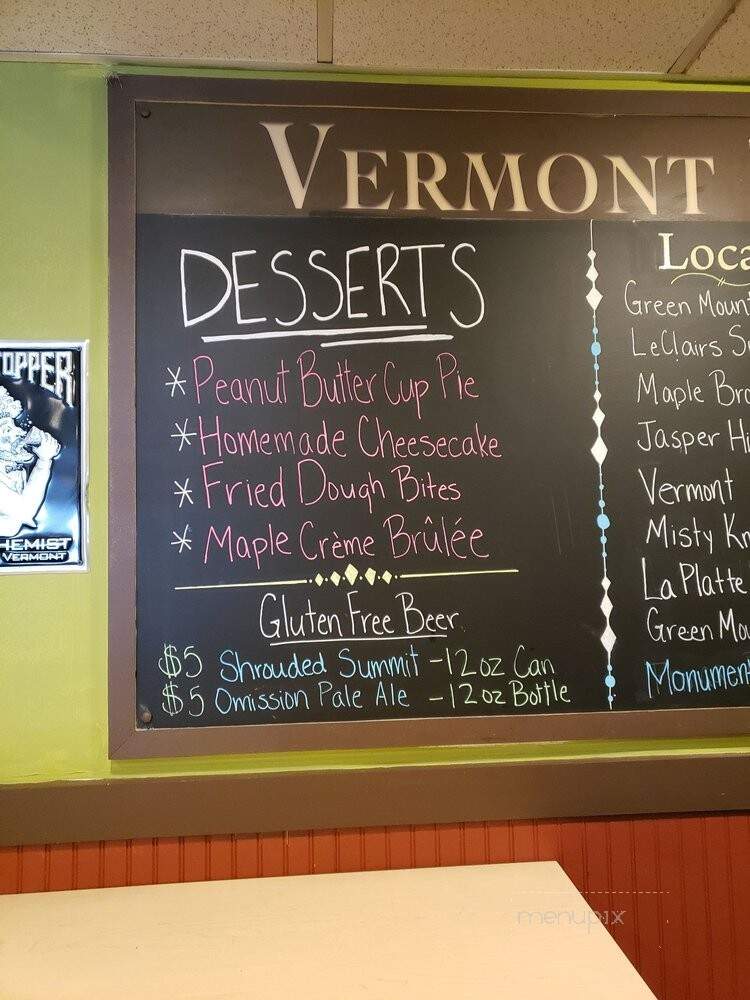 VERMONT
DESSERTS
* Peanut Butter Cup Pie
* Homemade Cheesecake
* Fried Dough Bites
* Maple Crème Brûlée
Gluten Free Beer
$5 Shrouded Summit - 12 oz Can
$5 Omission Pale Ale - 12 oz Bottle
Loca
Green Mount
LeClairs S
Maple Bro
Jasper Hi
Vermont
Misty Kn
La Platte
Green Mou
Monument
TOPPER
HEMIST
VERMONT
menupix